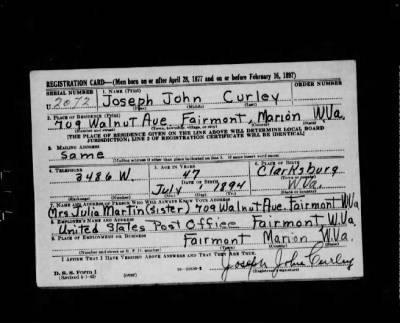 REGISTRATION CARD—(Men born on or after April 28, 1877 and on or before February 16, 1897)
SERIAL NUMBER 1. NAME (Print) ORDER NUMBER
U 2072 Joseph John Curley
(First) (Middle) (Last)
2. PLACE OF RESIDENCE (Print)
709 Walnut Ave. Fairmont, Marion W.Va.
(Number and street) (Town, township, village, or city) (County) (State)
[THE PLACE OF RESIDENCE GIVEN ON THE LINE ABOVE WILL DETERMINE LOCAL BOARD
JURISDICTION; LINE 2 OF REGISTRATION CERTIFICATE WILL BE IDENTICAL]
3. MAILING ADDRESS
Same
(Mailing address if other than place indicated on line 2. If same insert word same)
4. TELEPHONE 5. AGE IN YEARS 6. PLACE OF BIRTH
3486 W. 47 Clarksburg
DATE OF BIRTH (Town or county)
July 1894 W.Va.
7. NAME AND ADDRESS OF PERSON WHO WILL ALWAYS KNOW YOUR ADDRESS
Mrs Julia Martin (sister) 709 Walnut Ave. Fairmont W.Va
8. EMPLOYER'S NAME AND ADDRESS
United States Post Office Fairmont, W.Va.
9. PLACE OF EMPLOYMENT OR BUSINESS
Fairmont Marion W.Va.
(Number and street or R. F. D. number) (Town) (County) (State)
I AFFIRM THAT I HAVE VERIFIED ABOVE ANSWERS AND THAT THEY ARE TRUE.
D. S. S. Form 1 Joseph John Curley
(Revised 4-1-42) (over) (Registrant's signature)